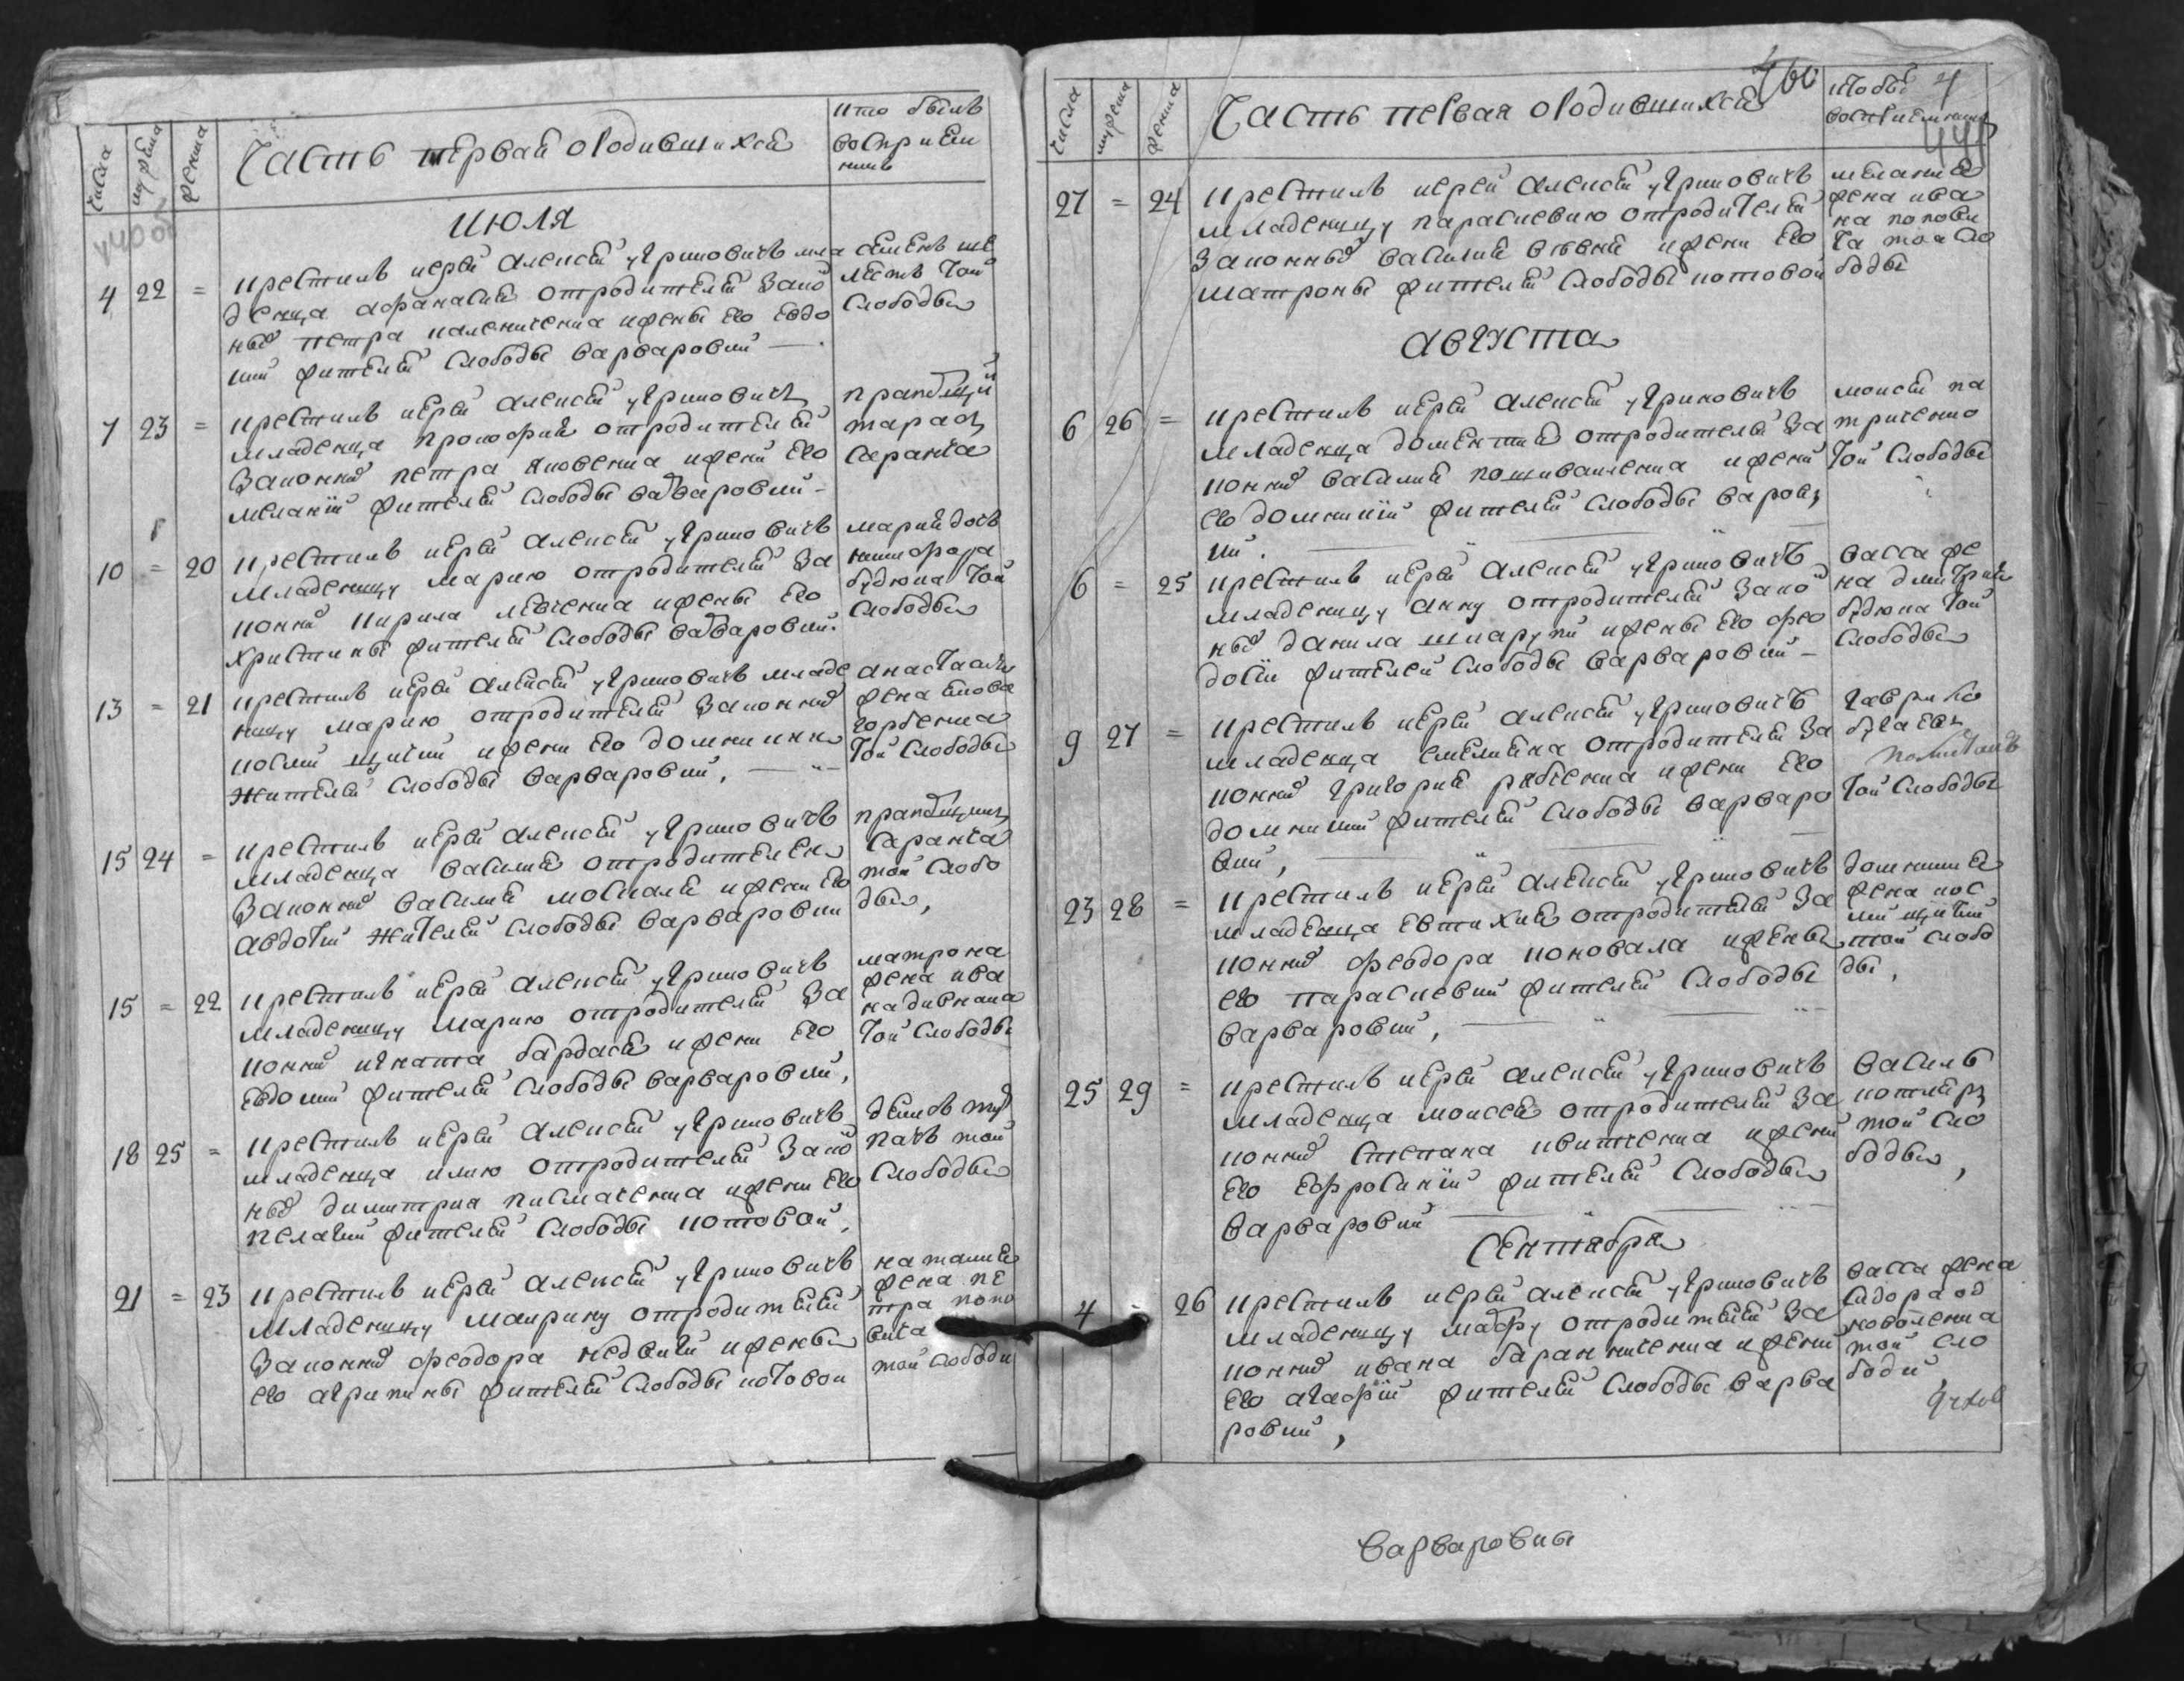 Числа
муска
женска
Часть первая о родившихся
кто былъ
восприем
никъ
440 об
июля
4 22 =
крестилъ иерей алексей угриновичъ мла
денца афанасия от родителей зако
ных петра каленченка и жены его евдо
кии жителей слободы варваровки
семенъ ше
лестъ той
слободы
7 23 =
крестилъ иерей алексей угриновичъ
младенца прокофия от родителей
законных петра яковенка и жени его
мелании жителей слободы варваровки
тарасъ
саранча
10 = 20
крестилъ иерей алексей угриновичъ
младеницу марию от родителей за
конних кирила левченка и жены его
христины жителей слободы варваровки
мария дочь
никифора
будюка той
слободы
13 = 21
крестилъ иерей алексей угриновичъ младе
ницу марию от родителей законних
жени его домникии
жителей слободы варваровки,
анастасия
жена
горбенка
той слободы
15 24 =
крестилъ иерей алексей угриновичъ
младенца василия от родителей
законних василия москаля и жени его
авдотии жителей слободы варваровки
саранча
той слобо
ды,
15 = 22
крестилъ иерей алексей угриновичъ
младеницу марию от родителей за
конних игната бардася и жени его
евдокии жителей слободы варваровки,
матрона
жена ива
на дивнака
той слободы
18 25 =
крестилъ иерей алексей угриновичъ
младенца илию от родителей зако
ных димитрия писмаченка и жени его
пелагии жителей слободы котовой,
той
слободы
21 = 23
крестилъ иерей алексей угриновичъ
младеницу маирину от родителей
законних феодора недвиги и жены
его агрипины жителей слободы котовои
наталия
жена пе
тра попо
вича
той слободи
числа
мужска
женска
Часть первая о родившихся
кто былъ
восприемникъ
27 = 24
крестилъ иерей алексей угриновичъ
младеницу параскевию от родителей
законных василия и жени его
матроны жителей слободы котовой
мелания
жена ива
на попови
ча той сло
боды
августа
6 26 =
крестилъ иерей алексей угриновичъ
младенца дометия от родителей за
конних василия пошиваиленка и жени
его домникии жителей слободы варвров
ки.
моисей па
триченко
той слободы
6 = 25
крестилъ иерей алексей угриновичъ
младеницу анну от родителей зако
ных данила шкарупи и жены его фео
досии жителей слободы варваровки
васса же
на дмитрия
будюка той
слободы
9 27 =
крестилъ иерей алексей угриновичъ
младенца емелияна от родителей за
конних григория рябченка и жени его
домникии жителей слободы варваро
вки,
гаврило
той слободы
23 28 =
крестилъ иерей алексей угриновичъ
младенца евтихия от родителей за
конних феодора коновала и жены
его параскевии жителей слободы
варваровки,
домникия
жена кос
той слобо
ды,
25 29 =
крестилъ иерей алексей угриновичъ
младенца моисея от родителей за
конних степана квитченка и жени
его ефросинии жителей слободы
варваровки
василь
котляръ
той сло
боды,
сентября
4 = 26
крестилъ иерей алексей угриновичъ
младеницу марфу от родителей за
конних ивана баранниченка и жени
его агафии жителей слободы варва
ровки,
васса жена
сидора од
нороженка
той сло
боди,
варваровки